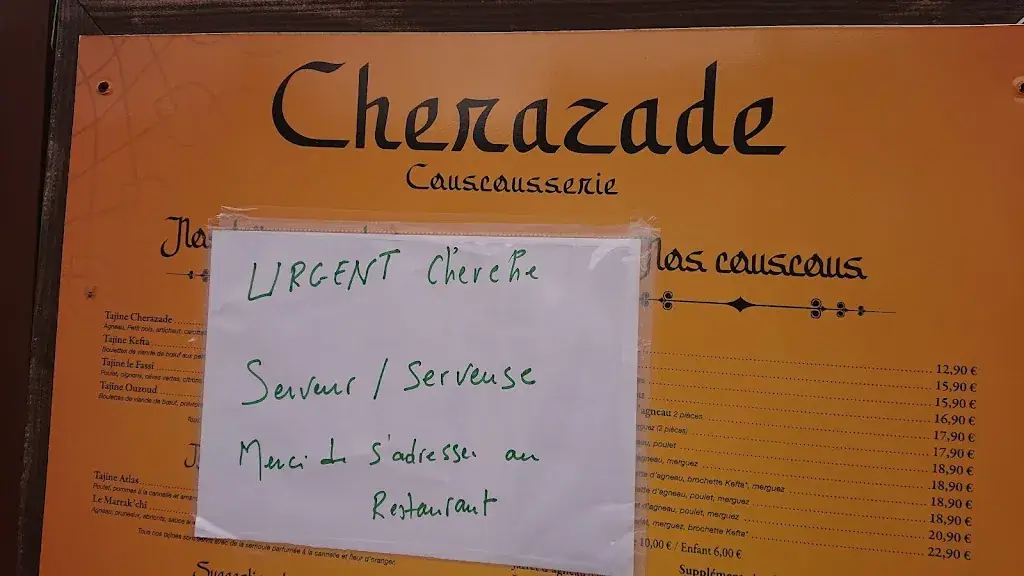 Cherazade
Couscousserie
Nos couscous
URGENT Cherche
Serveur / Serveuse
Merci de s'adresser au
Restaurant
Tajine Cherazade
Agneau, Petit pois, artichaut, carottes
Tajine Kefta
Boulettes de viande de bœuf aux
Tajine le Fassi
Poulet, oignons, olives vertes, citrons
Tajine Ouzoud
Boulettes de viande de bœuf,
Tajine Atlas
Poulet, pommes à la cannelle et
Le Marrak'chi
Agneau, pruneaux, abricots, sauce
Tous nos tajines sont servis avec de la semoule parfumée à la cannelle et fleur d'oranger.
12,90 €
15,90 €
15,90 €
agneau 2 pièces 16,90 €
merguez (2 pièces) 17,90 €
agneau, poulet 17,90 €
agneau, merguez 18,90 €
d'agneau, brochette Kefta*, merguez 18,90 €
d'agneau, poulet, merguez 18,90 €
d'agneau, poulet, merguez 18,90 €
merguez, brochette Kefta* 20,90 €
22,90 €
10,00 € / Enfant 6,00 €